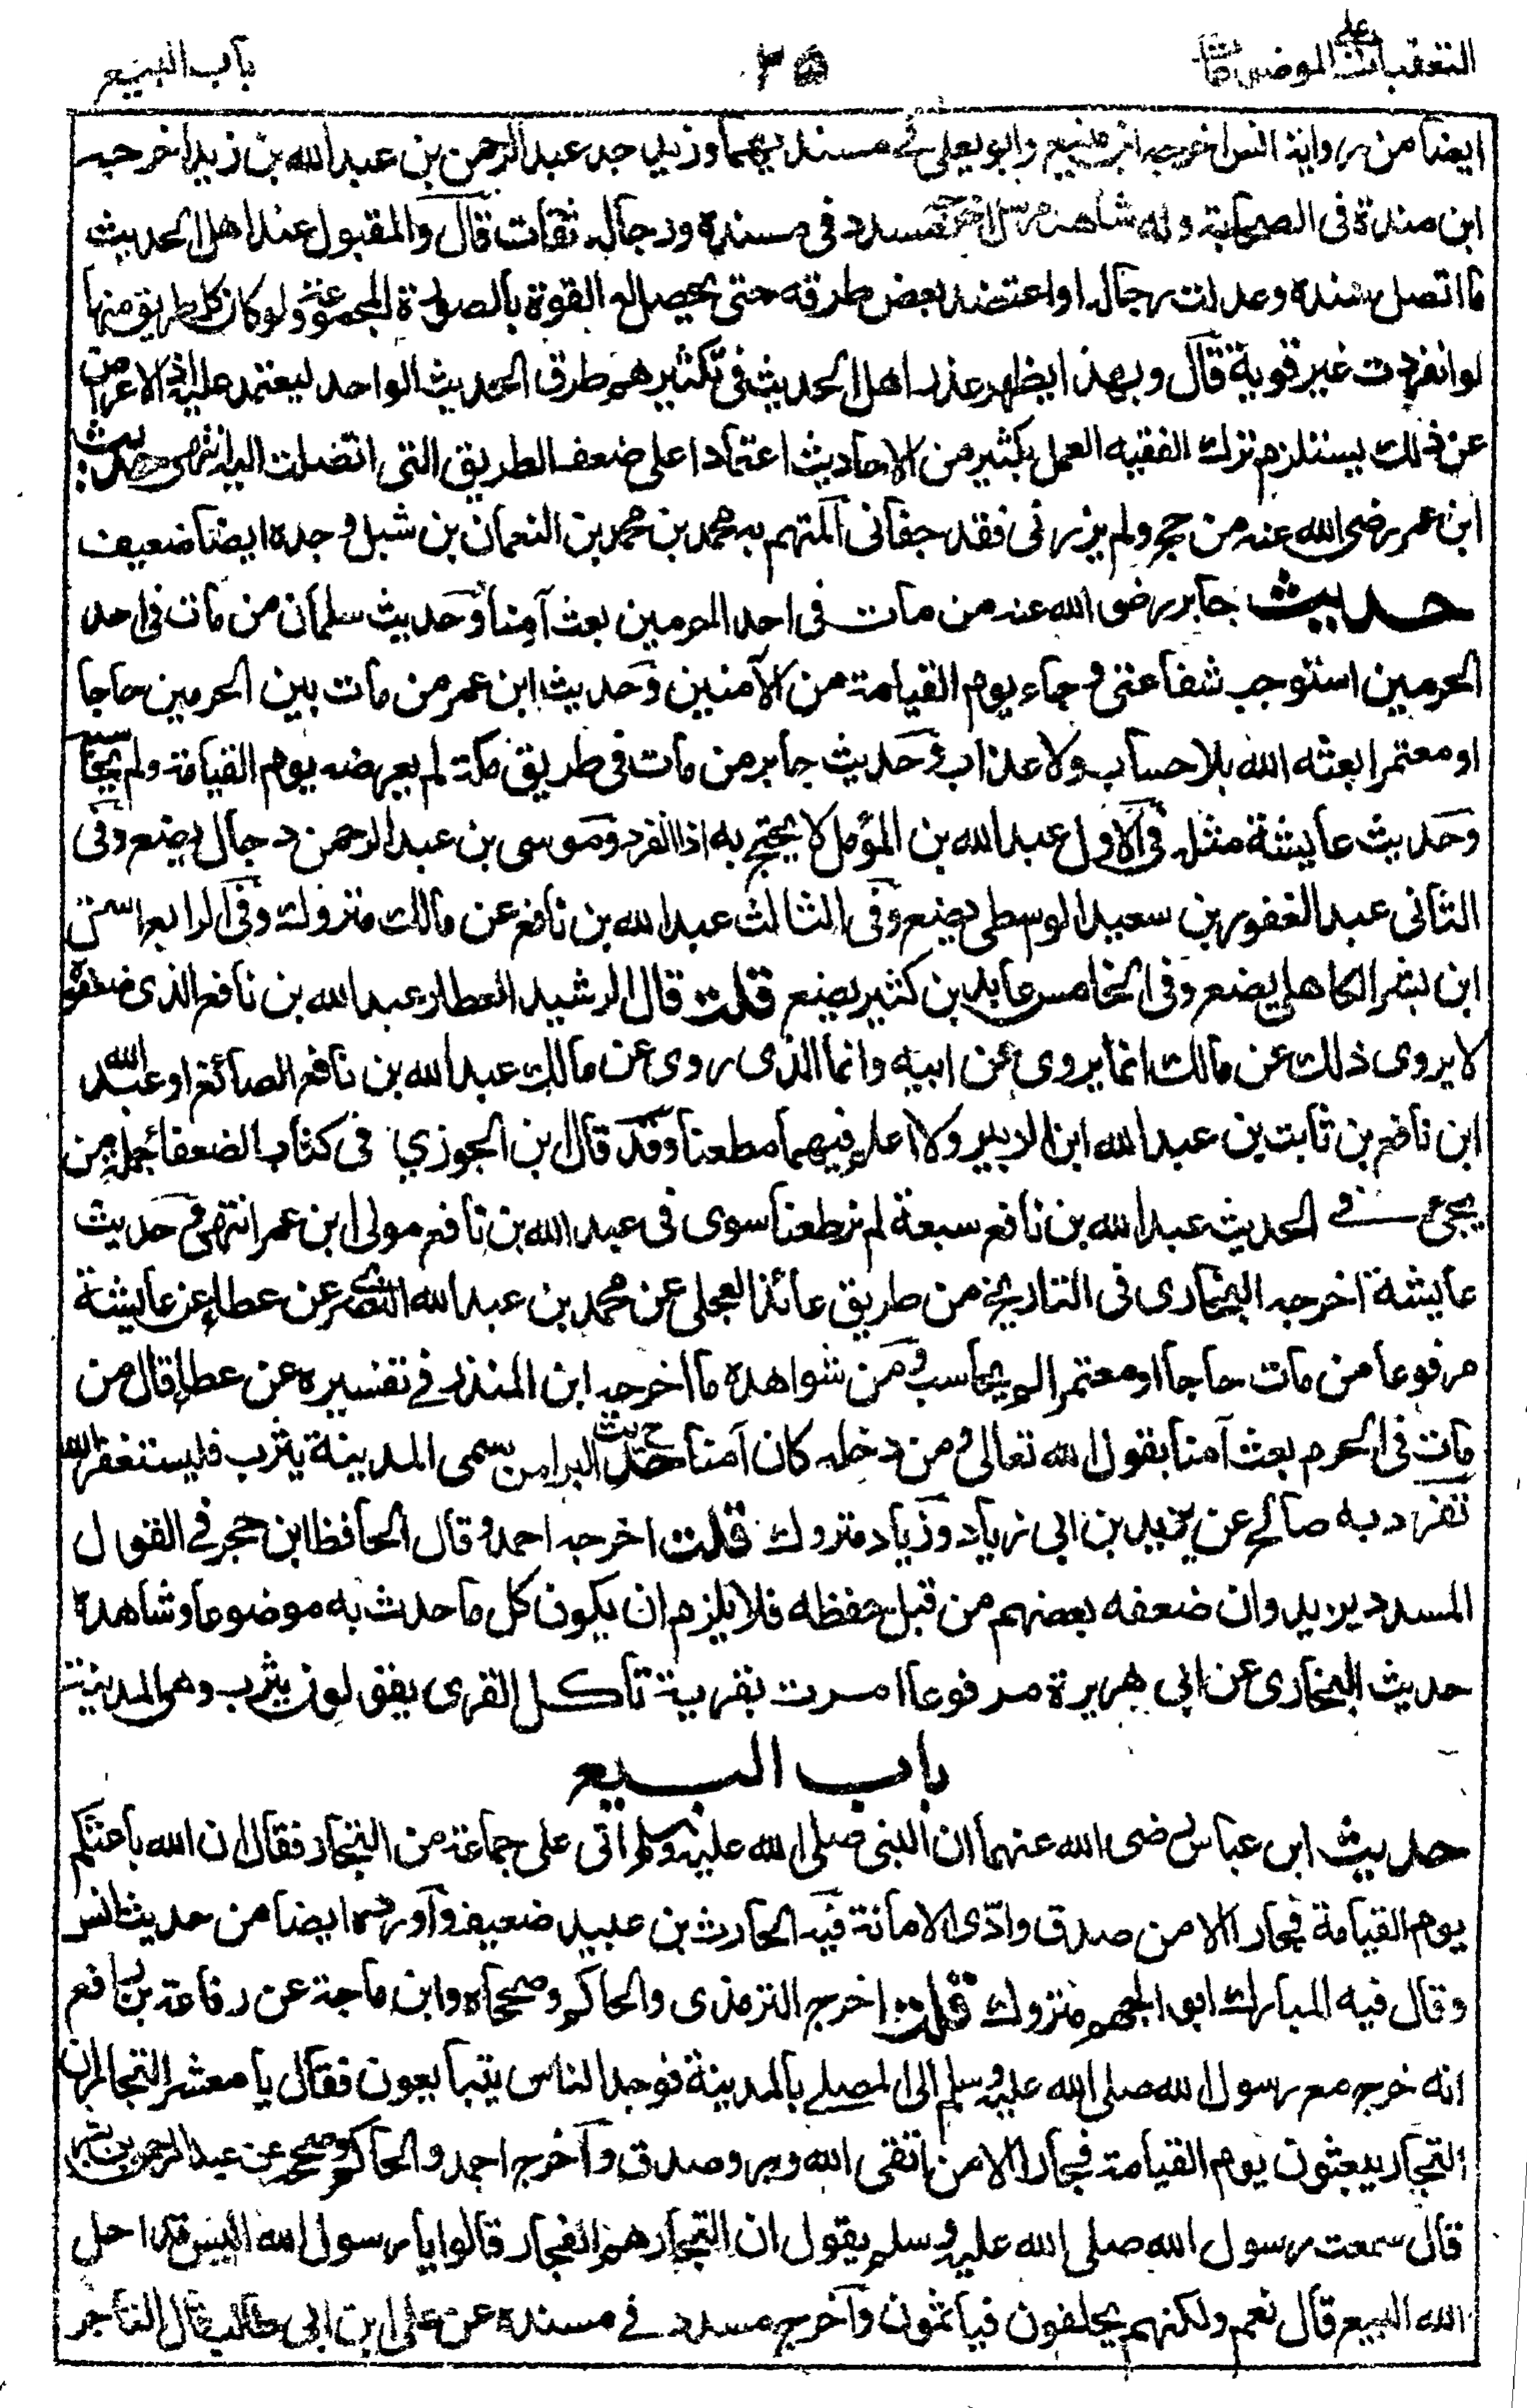 التعقبات على الموضوعات
٣٥
باب البيع
ايضا من رواية انس اخرجه ابن منيع وابو يعلى في مسنديهما وزيد جد عبد الرحمن بن عبد الله بن زيد اخرجه
ابن مندة فى الصحابة وله شاهد مرسل اخرجه مسدد فى مسنده ورجاله ثقات قال والمقبول عند اهل الحديث
ما اتصل سنده وعدلت رجاله او اعتضد بعض طرقه حتى يحصل له القوة بالصورة المجموعة ولو كان كل طريق منها
لو انفردت غير قوية قال وبهذا يظهر عذر اهل الحديث فى تكثيرهم طرق الحديث الواحد ليعتمد عليه اذ الاعراض
عن ذلك يستلزم ترك الفقيه العمل بكثير من الاحاديث اعتمادا على ضعف الطريق التى اتصلت اليه انتهى حديث
ابن عمر رضى الله عنه من حج ولم يزرنى فقد جفانى المتهم به محمد بن محمد بن النعمان بن شبل وجده ايضا ضعيف
حديث جابر رضى الله عنه من مات فى احد الحرمين بعث آمنا وحديث سلمان من مات فى احد
الحرمين استوجب شفاعتى وجاء يوم القيامة من الآمنين وحديث ابن عمر من مات بين الحرمين حاجا
او معتمرا بعثه الله بلا حساب ولا عذاب وحديث جابر من مات فى طريق مكة لم يعرضه يوم القيامة ولم يحاسبه
وحديث عايشة مثله فى الاول عبد الله بن المؤمل لا يحتج به اذا انفرد وموسى بن عبد الرحمن دجال يضع وفى
الثانى عبد الغفور بن سعيد الوسطى يضع وفى الثالث عبد الله بن نافع عن مالك متروك وفى الرابع اسحق
ابن بشر الكاهلى يضع وفى الخامس عايد بن كثير يضع قلت قال الرشيد العطار عبد الله بن نافع الذى ضعفوه
لا يروى ذلك عن مالك انما يروى عن ابيه وانما الذى روى عن مالك عبد الله بن نافع الصائغ او عبد الله
ابن نافع بن ثابت بن عبد الله ابن الزبير ولا اعلم فيهما مطعنا وقد قال بن الجوزي فى كتاب الضعفا جملة من
يجئ في الحديث عبد الله بن نافع سبعة لم نر طعنا سوى فى عبد الله بن نافع مولى ابن عمر انتهى وحديث
عايشة اخرجه البخارى فى التاريخ من طريق عائذ العجلى عن محمد بن عبد الله البصرى عن عطا عن عايشة
مرفوعا من مات حاجا او معتمرا لم يحاسب ومن شواهده ما اخرجه ابن المنذر في تفسيره عن عطا قال من
مات فى الحرم بعث آمنا بقول الله تعالى ومن دخله كان آمنا حديث البرا من سمى المدينة يثرب فليستغفر الله
تفرد به صالح عن يزيد بن ابى زياد وزياد متروك قلت اخرجه احمد وقال الحافظ ابن حجر في القول
المسدد يزيد وان ضعفه بعضهم من قبل حفظه فلا يلزم ان يكون كل ما حدث به موضوعا وشاهده
حديث البخارى عن ابى هريرة مرفوعا امرت بقرية تأكل القرى يقولون يثرب وهى المدينة
باب البيع
حديث ابن عباس رضى الله عنهما ان النبى صلى الله عليه وسلم اتى على جماعة من التجار فقال ان الله باعثكم
يوم القيامة فجارا الا من صدق وادّى الامانة فيه الحارث بن عبيد ضعيف وآورده ايضا من حديث انس
وقال فيه المبارك ابو الجهم متروك قلت اخرج الترمذى والحاكم وصححاه وابن ماجة عن رفاعة بن رافع
انه خرج مع رسول الله صلى الله عليه وسلم الى المصلے بالمدينة فوجد الناس يتبايعون فقال يا معشر التجار ان
التجار يبعثون يوم القيامة فجارا الا من اتقى الله وبر وصدق وآخرج احمد والحاكم وصححه عن عبد الرحمن بن شبل
قال سمعت رسول الله صلى الله عليه وسلم يقول ان التجار هم الفجار قالوا يا رسول الله اليس قد احل
الله البيع قال نعم ولكنهم يحلفون فيأثمون وآخرج مسدد في مسنده عن على ابن ابى طالب قال التاجر